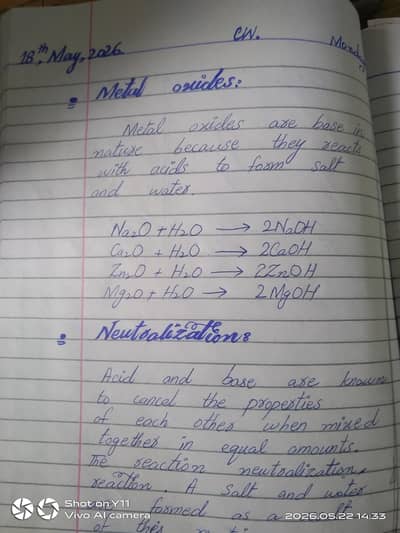 18th, May, 2026
CW.
Metal oxides:
Metal oxides are base in
nature because they reacts
with acids to form salt
and water.
Na2O + H2O → 2NaOH
Ca2O + H2O → 2CaOH
Zn2O + H2O → 2ZnOH
Mg2O + H2O → 2MgOH
Neutralization:
Acid and base are known
to cancel the properties
of each other when mixed
together in equal amounts.
The reaction neutralization
reaction. A salt and water
formed as a
of this
Shot on Y11
Vivo AI camera
2026.05.22 14:33